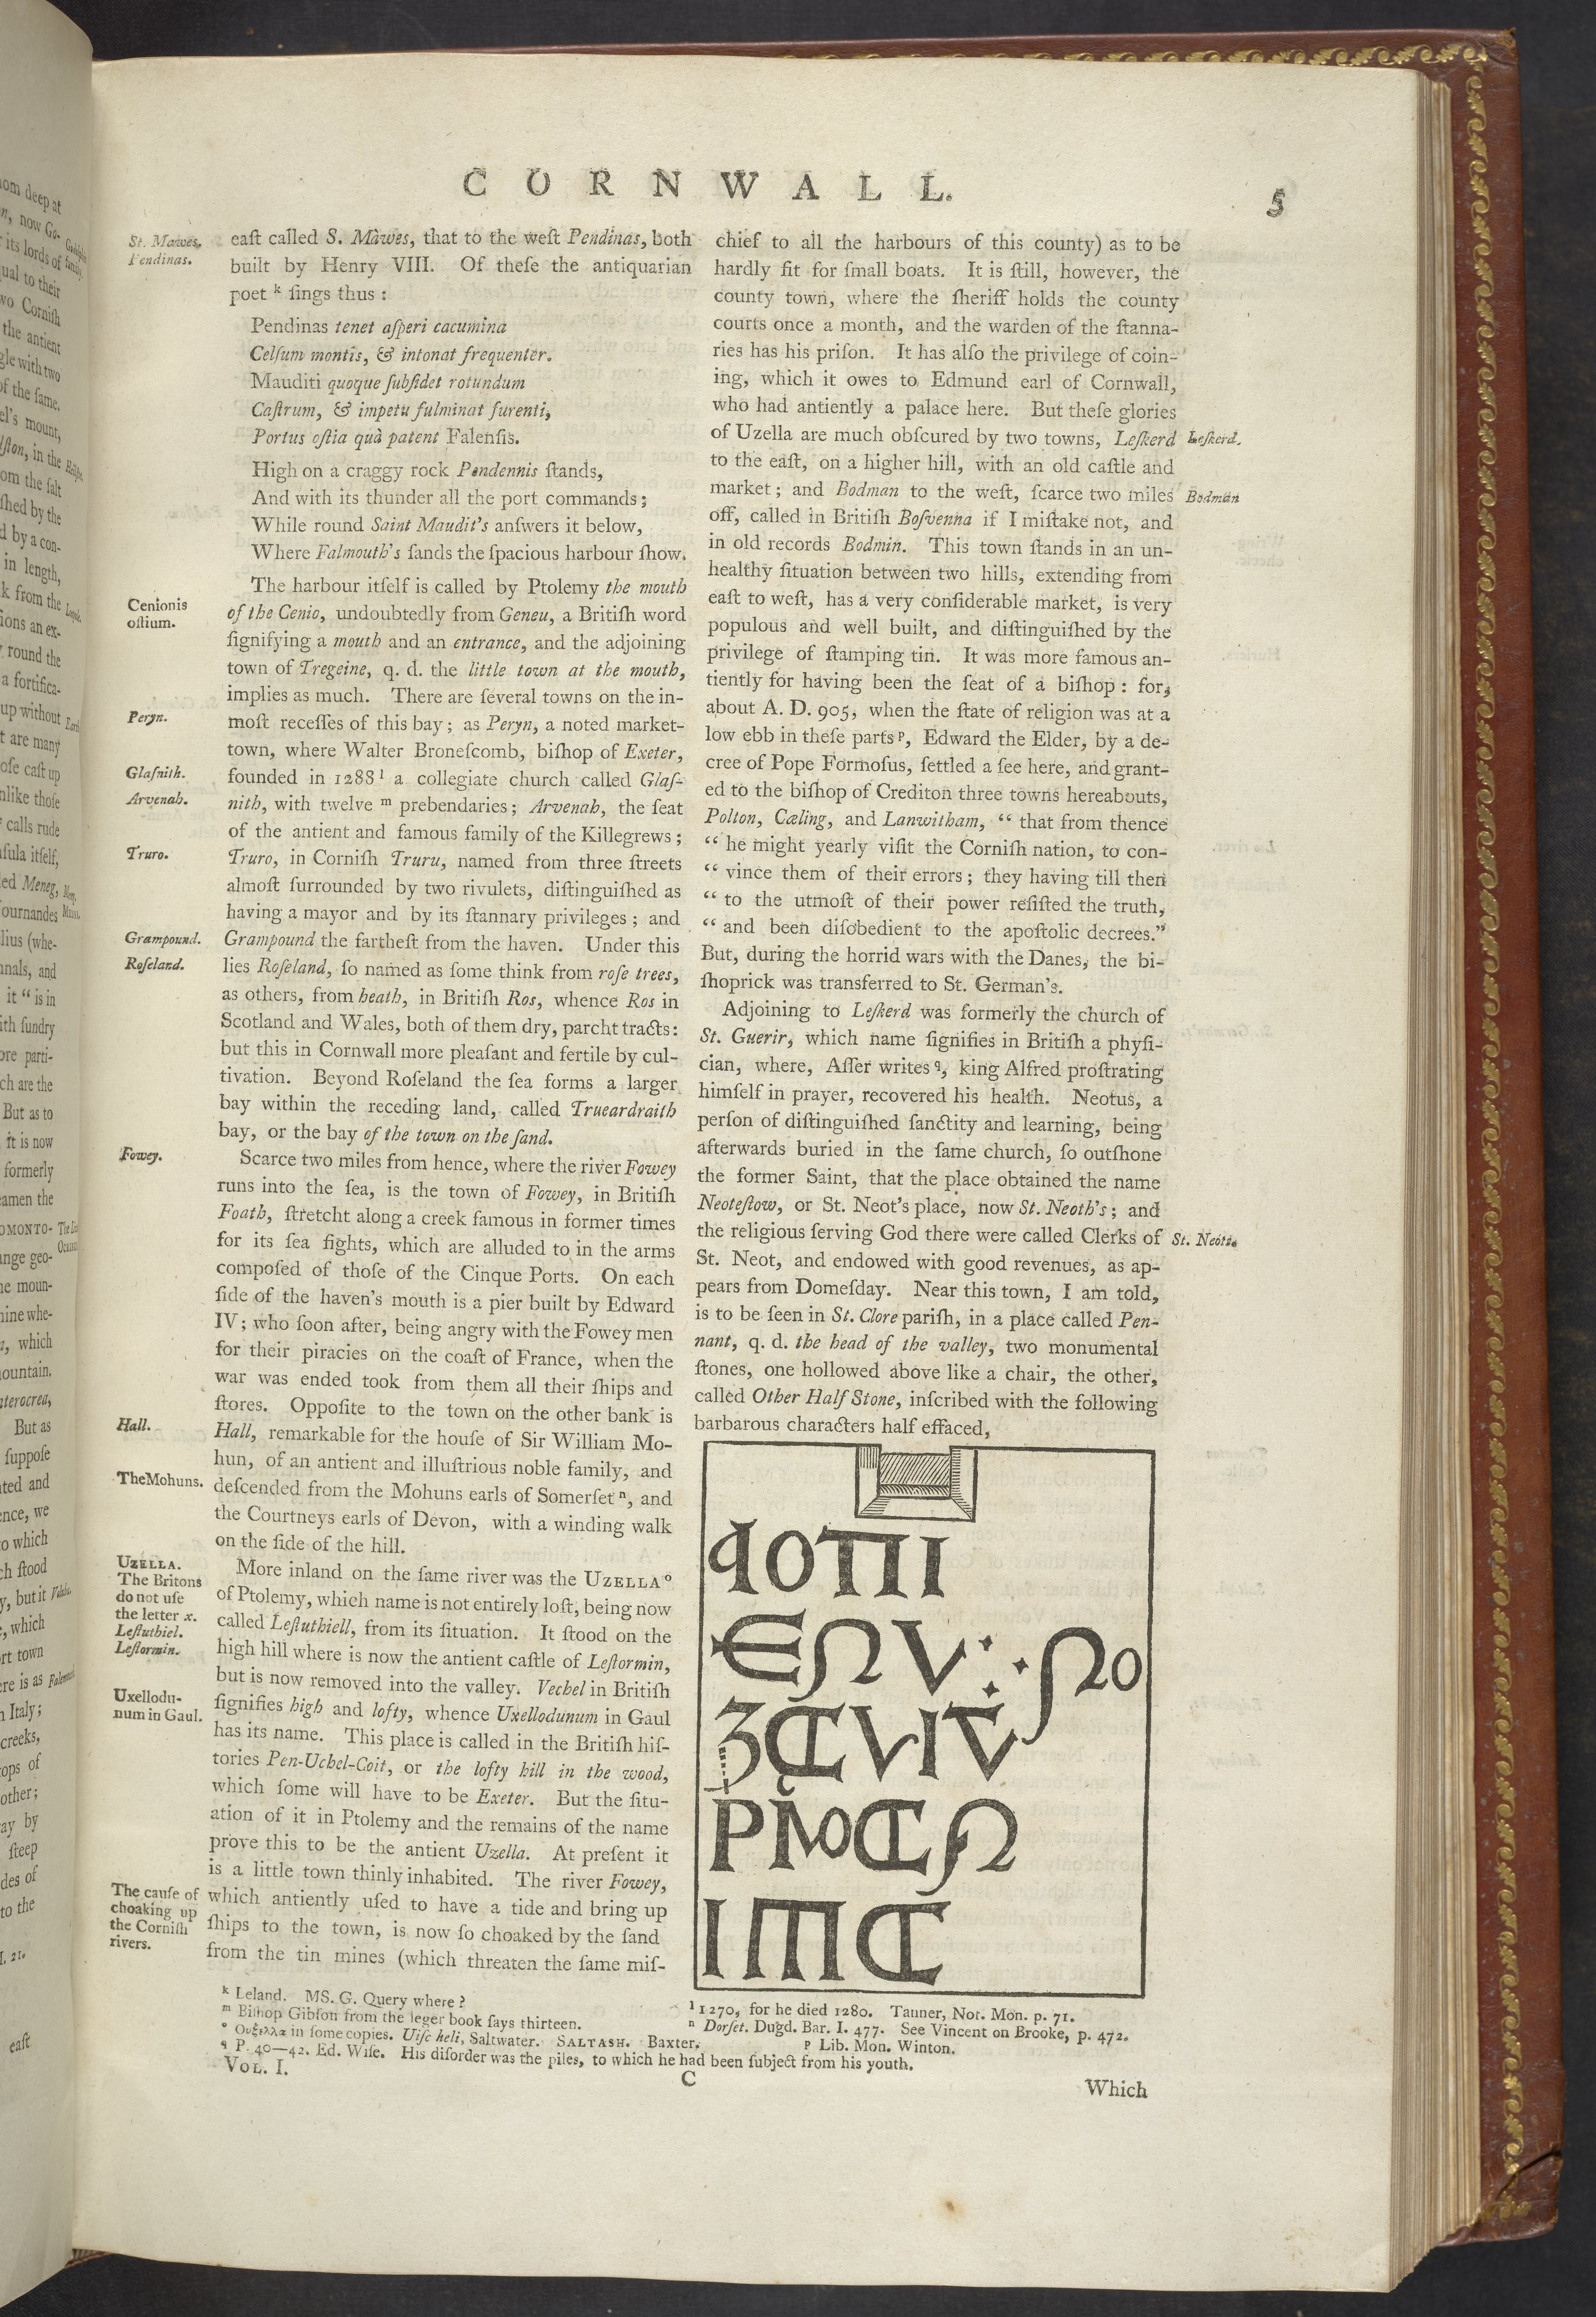 CORNWALL.
5
St. Mawes.
Pendinas.
eaſt called S. Màwes, that to the weſt Pendinas, both
built by Henry VIII. Of theſe the antiquarian
poet k ſings thus :
Pendinas tenet aſperi cacumina
Celſum montis, & intonat frequenter.
Mauditi quoque ſubſidet rotundum
Caſtrum, & impetu fulminat furenti,
Portus oſtia quà patent Falenſis.
High on a craggy rock Pendennis ſtands,
And with its thunder all the port commands ;
While round Saint Maudit's anſwers it below,
Where Falmouth's ſands the ſpacious harbour ſhow.
Cenionis
oſtium.
The harbour itſelf is called by Ptolemy the mouth
of the Cenio, undoubtedly from Geneu, a Britiſh word
ſignifying a mouth and an entrance, and the adjoining
town of Tregeine, q. d. the little town at the mouth,
implies as much. There are ſeveral towns on the in-
Peryn.
moſt receſſes of this bay ; as Peryn, a noted market-
town, where Walter Broneſcomb, biſhop of Exeter,
Glaſnith.
founded in 1288 l a collegiate church called Glaſ-
Arvenah.
nith, with twelve m prebendaries ; Arvenah, the ſeat
of the antient and famous family of the Killegrews ;
Truro.
Truro, in Corniſh Truru, named from three ſtreets
almoſt ſurrounded by two rivulets, diſtinguiſhed as
having a mayor and by its ſtannary privileges ; and
Grampound.
Grampound the fartheſt from the haven. Under this
Roſeland.
lies Roſeland, ſo named as ſome think from roſe trees,
as others, from heath, in Britiſh Ros, whence Ros in
Scotland and Wales, both of them dry, parcht tracts :
but this in Cornwall more pleaſant and fertile by cul-
tivation. Beyond Roſeland the ſea forms a larger
bay within the receding land, called Trueardraith
bay, or the bay of the town on the ſand.
Fowey.
Scarce two miles from hence, where the river Fowey
runs into the ſea, is the town of Fowey, in Britiſh
Foath, ſtretcht along a creek famous in former times
for its ſea fights, which are alluded to in the arms
compoſed of thoſe of the Cinque Ports. On each
ſide of the haven's mouth is a pier built by Edward
IV ; who ſoon after, being angry with the Fowey men
for their piracies on the coaſt of France, when the
war was ended took from them all their ſhips and
ſtores. Oppoſite to the town on the other bank is
Hall.
Hall, remarkable for the houſe of Sir William Mo-
hun, of an antient and illuſtrious noble family, and
The Mohuns.
deſcended from the Mohuns earls of Somerſet n, and
the Courtneys earls of Devon, with a winding walk
on the ſide of the hill.
UZELLA.
The Britons
do not uſe
the letter x.
Leſtuthiel.
Leſtormin.
More inland on the ſame river was the UZELLA o
of Ptolemy, which name is not entirely loſt, being now
called Leſtuthiell, from its ſituation. It ſtood on the
high hill where is now the antient caſtle of Leſtormin,
but is now removed into the valley. Vechel in Britiſh
Uxellodu-
num in Gaul.
ſignifies high and lofty, whence Uxellodunum in Gaul
has its name. This place is called in the Britiſh hiſ-
tories Pen-Uchel-Coit, or the lofty hill in the wood,
which ſome will have to be Exeter. But the ſitu-
ation of it in Ptolemy and the remains of the name
prove this to be the antient Uzella. At preſent it
is a little town thinly inhabited. The river Fowey,
The cauſe of
choaking up
the Corniſh
rivers.
which antiently uſed to have a tide and bring up
ſhips to the town, is now ſo choaked by the ſand
from the tin mines (which threaten the ſame miſ-
chief to all the harbours of this county) as to be
hardly fit for ſmall boats. It is ſtill, however, the
county town, where the ſheriff holds the county
courts once a month, and the warden of the ſtanna-
ries has his priſon. It has alſo the privilege of coin-
ing, which it owes to Edmund earl of Cornwall,
who had antiently a palace here. But theſe glories
of Uzella are much obſcured by two towns, Leſkerd
Leſkerd.
to the eaſt, on a higher hill, with an old caſtle and
market ; and Bodman to the weſt, ſcarce two miles
Bodman
off, called in Britiſh Boſvenna if I miſtake not, and
in old records Bodmin. This town ſtands in an un-
healthy ſituation between two hills, extending from
eaſt to weſt, has a very conſiderable market, is very
populous and well built, and diſtinguiſhed by the
privilege of ſtamping tin. It was more famous an-
tiently for having been the ſeat of a biſhop : for,
about A. D. 905, when the ſtate of religion was at a
low ebb in theſe parts p, Edward the Elder, by a de-
cree of Pope Formoſus, ſettled a ſee here, and grant-
ed to the biſhop of Crediton three towns hereabouts,
Polton, Cæling, and Lanwitham, “ that from thence
“ he might yearly viſit the Corniſh nation, to con-
“ vince them of their errors ; they having till then
“ to the utmoſt of their power reſiſted the truth,
“ and been diſobedient to the apoſtolic decrees.”
But, during the horrid wars with the Danes, the bi-
ſhoprick was transferred to St. German's.
Adjoining to Leſkerd was formerly the church of
St. Guerir, which name ſignifies in Britiſh a phyſi-
cian, where, Aſſer writes q, king Alfred proſtrating
himſelf in prayer, recovered his health. Neotus, a
perſon of diſtinguiſhed ſanctity and learning, being
afterwards buried in the ſame church, ſo outſhone
the former Saint, that the place obtained the name
Neoteſtow, or St. Neot's place, now St. Neoth's ; and
the religious ſerving God there were called Clerks of
St. Neots.
St. Neot, and endowed with good revenues, as ap-
pears from Domeſday. Near this town, I am told,
is to be ſeen in St. Clore pariſh, in a place called Pen-
nant, q. d. the head of the valley, two monumental
ſtones, one hollowed above like a chair, the other,
called Other Half Stone, inſcribed with the following
barbarous characters half effaced,
k Leland. MS. G. Query where ?
l 1270, for he died 1280. Tanner, Not. Mon. p. 71.
m Biſhop Gibſon from the leger book ſays thirteen.
n Dorſet. Dugd. Bar. I. 477. See Vincent on Brooke, p. 472.
o Ουξελλα in ſome copies. Uiſc heli, Saltwater. SALTASH. Baxter.
p Lib. Mon. Winton.
q P. 40—42. Ed. Wiſe. His diſorder was the piles, to which he had been ſubject from his youth.
VOL. I.
C
Which